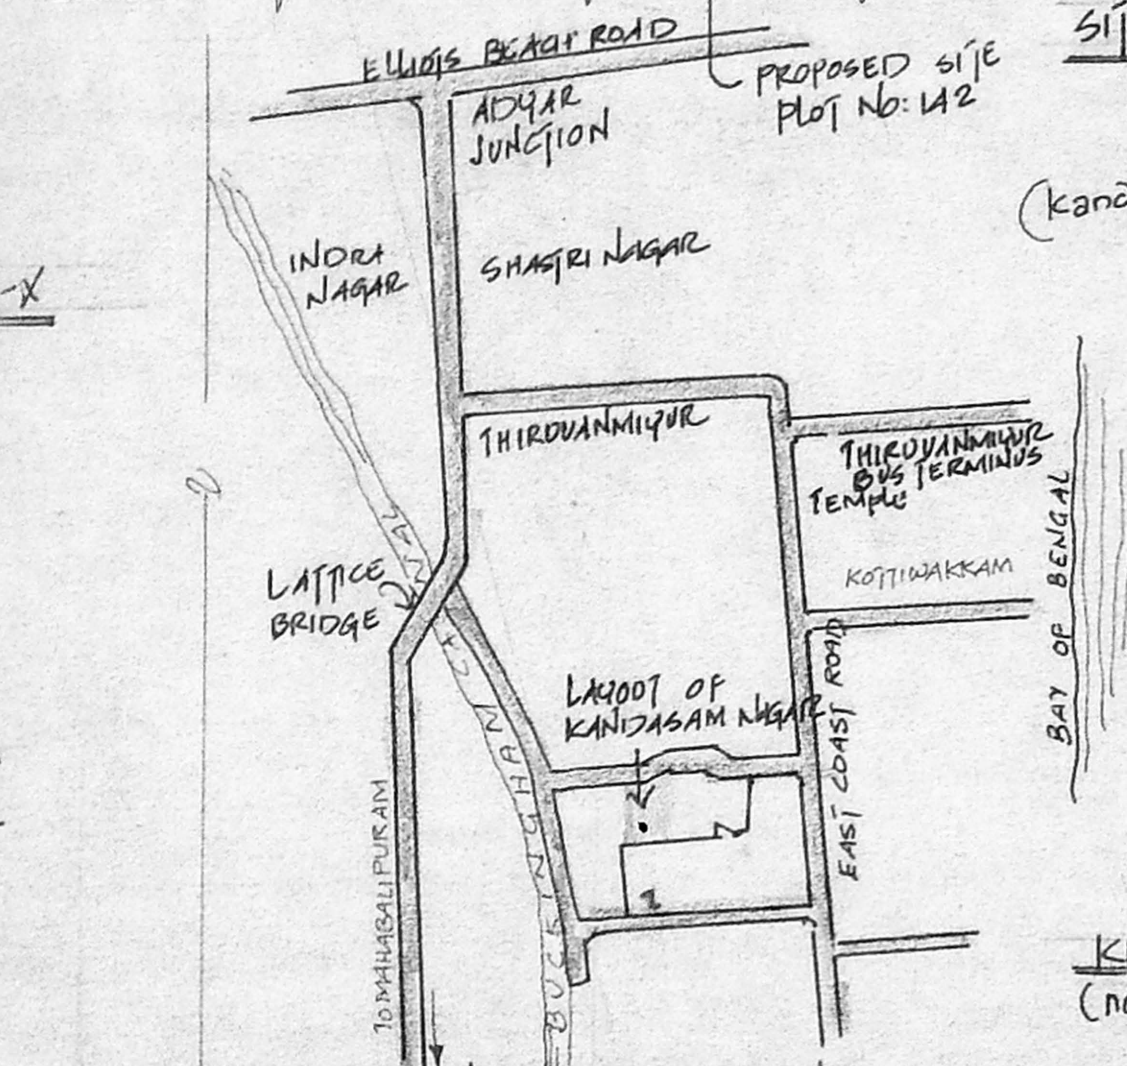 ELLIOTS BEACH ROAD
SIT
PROPOSED SITE
PLOT NO: 142
ADYAR
JUNCTION
(Kand
INDRA
NAGAR
SHASTRI NAGAR
-X
THIRUVANMIYUR
THIRUVANMIYUR
BUS TERMINUS
TEMPLE
KOTTIWAKKAM
BAY OF BENGAL
LATTICE
BRIDGE
LAYOUT OF
KANDASAM NAGAR
EAST COAST ROAD
TO MAHABALIPURAM
BUCKINGHAM CANAL
K
(no